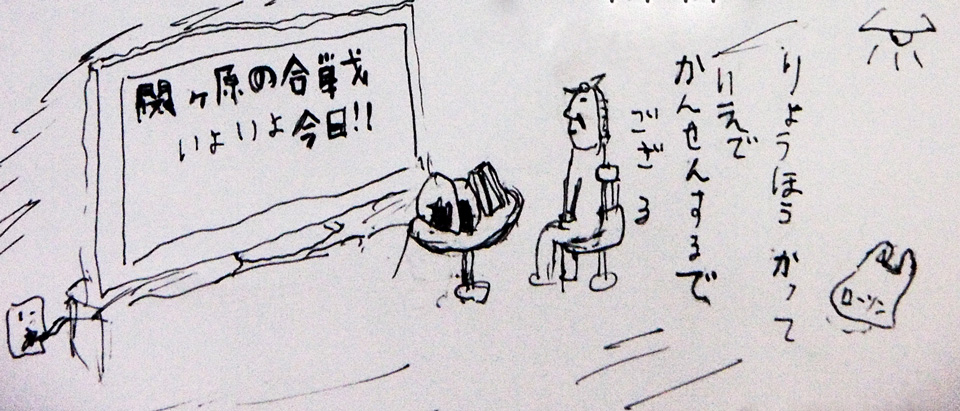 関ヶ原の合戦
いよいよ今日!!
りょうほう かって
いえで
かんせんするで
ござる
ローソン